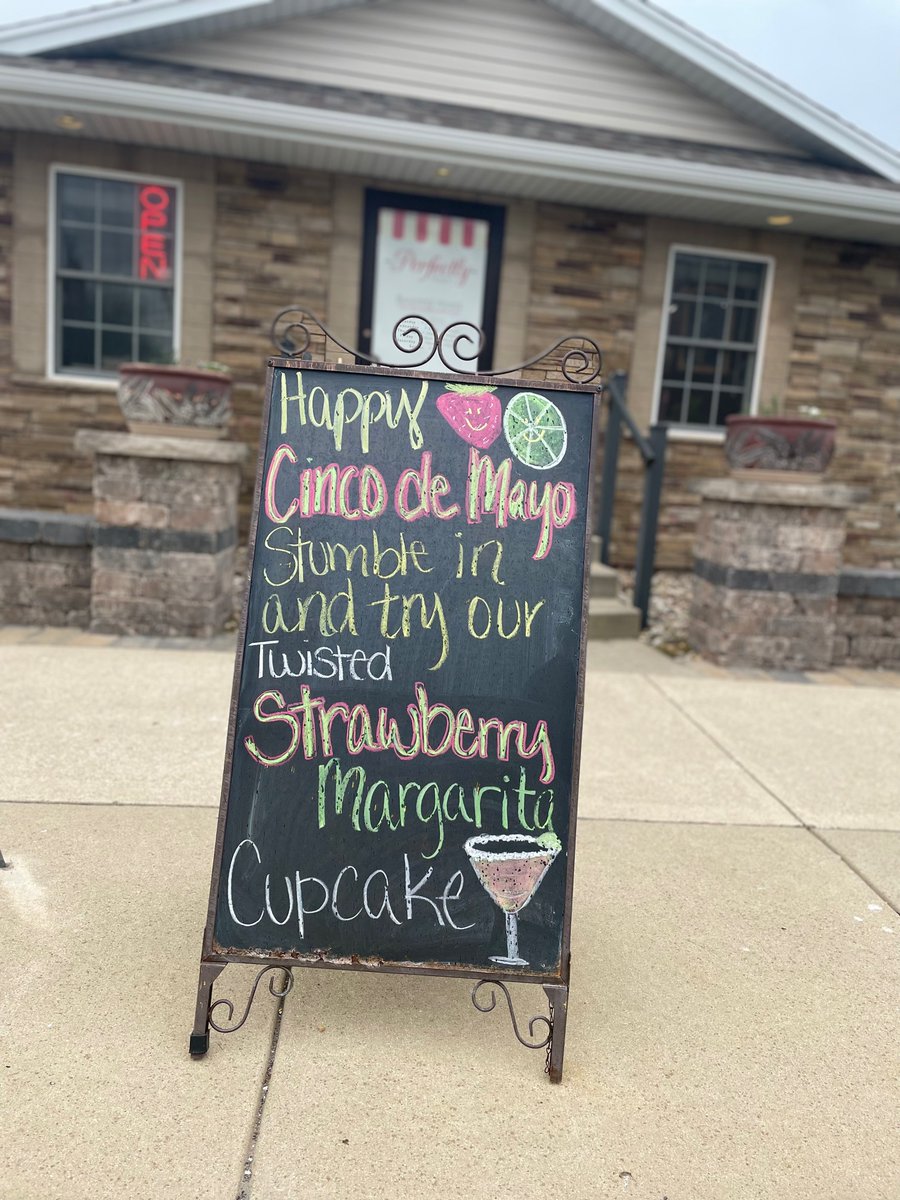 OPEN
Perfectly
Happy
Cinco de Mayo
Stumble in
and try our
Twisted
Strawberry
Margarita
Cupcake